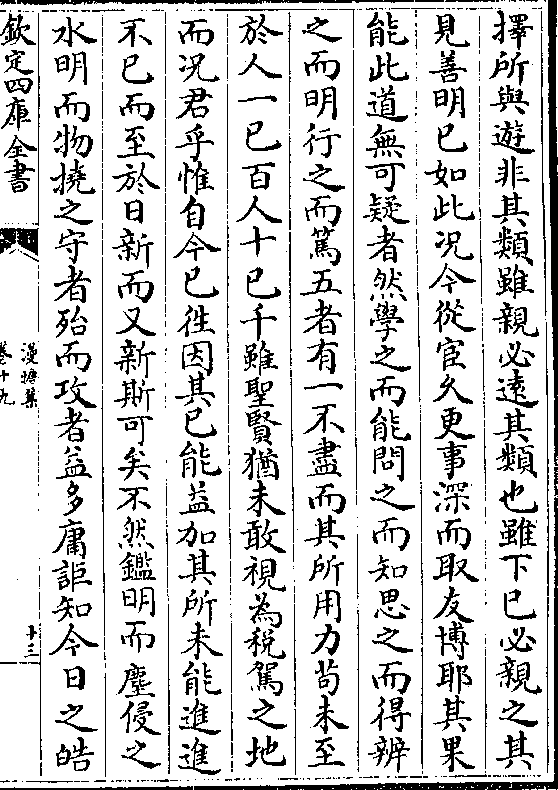 擇所與遊非其類雖親必遠其類也雖下已必親之其
見善明已如此况今從宦久更事深而取友博耶其果
能此道無可疑者然學之而能問之而知思之而得辨
之而明行之而篤五者有一不盡而其所用力茍未至
於人一已百人十已千雖聖賢猶未敢視為税駕之地
而况君乎惟自今已徃因其已能益加其所未能進進
不已而至於日新而又新斯可矣不然鑑明而塵侵之
水明而物撓之守者殆而攻者益多庸詎知今日之皓
欽定四庫全書
漫塘集
卷十九
十三